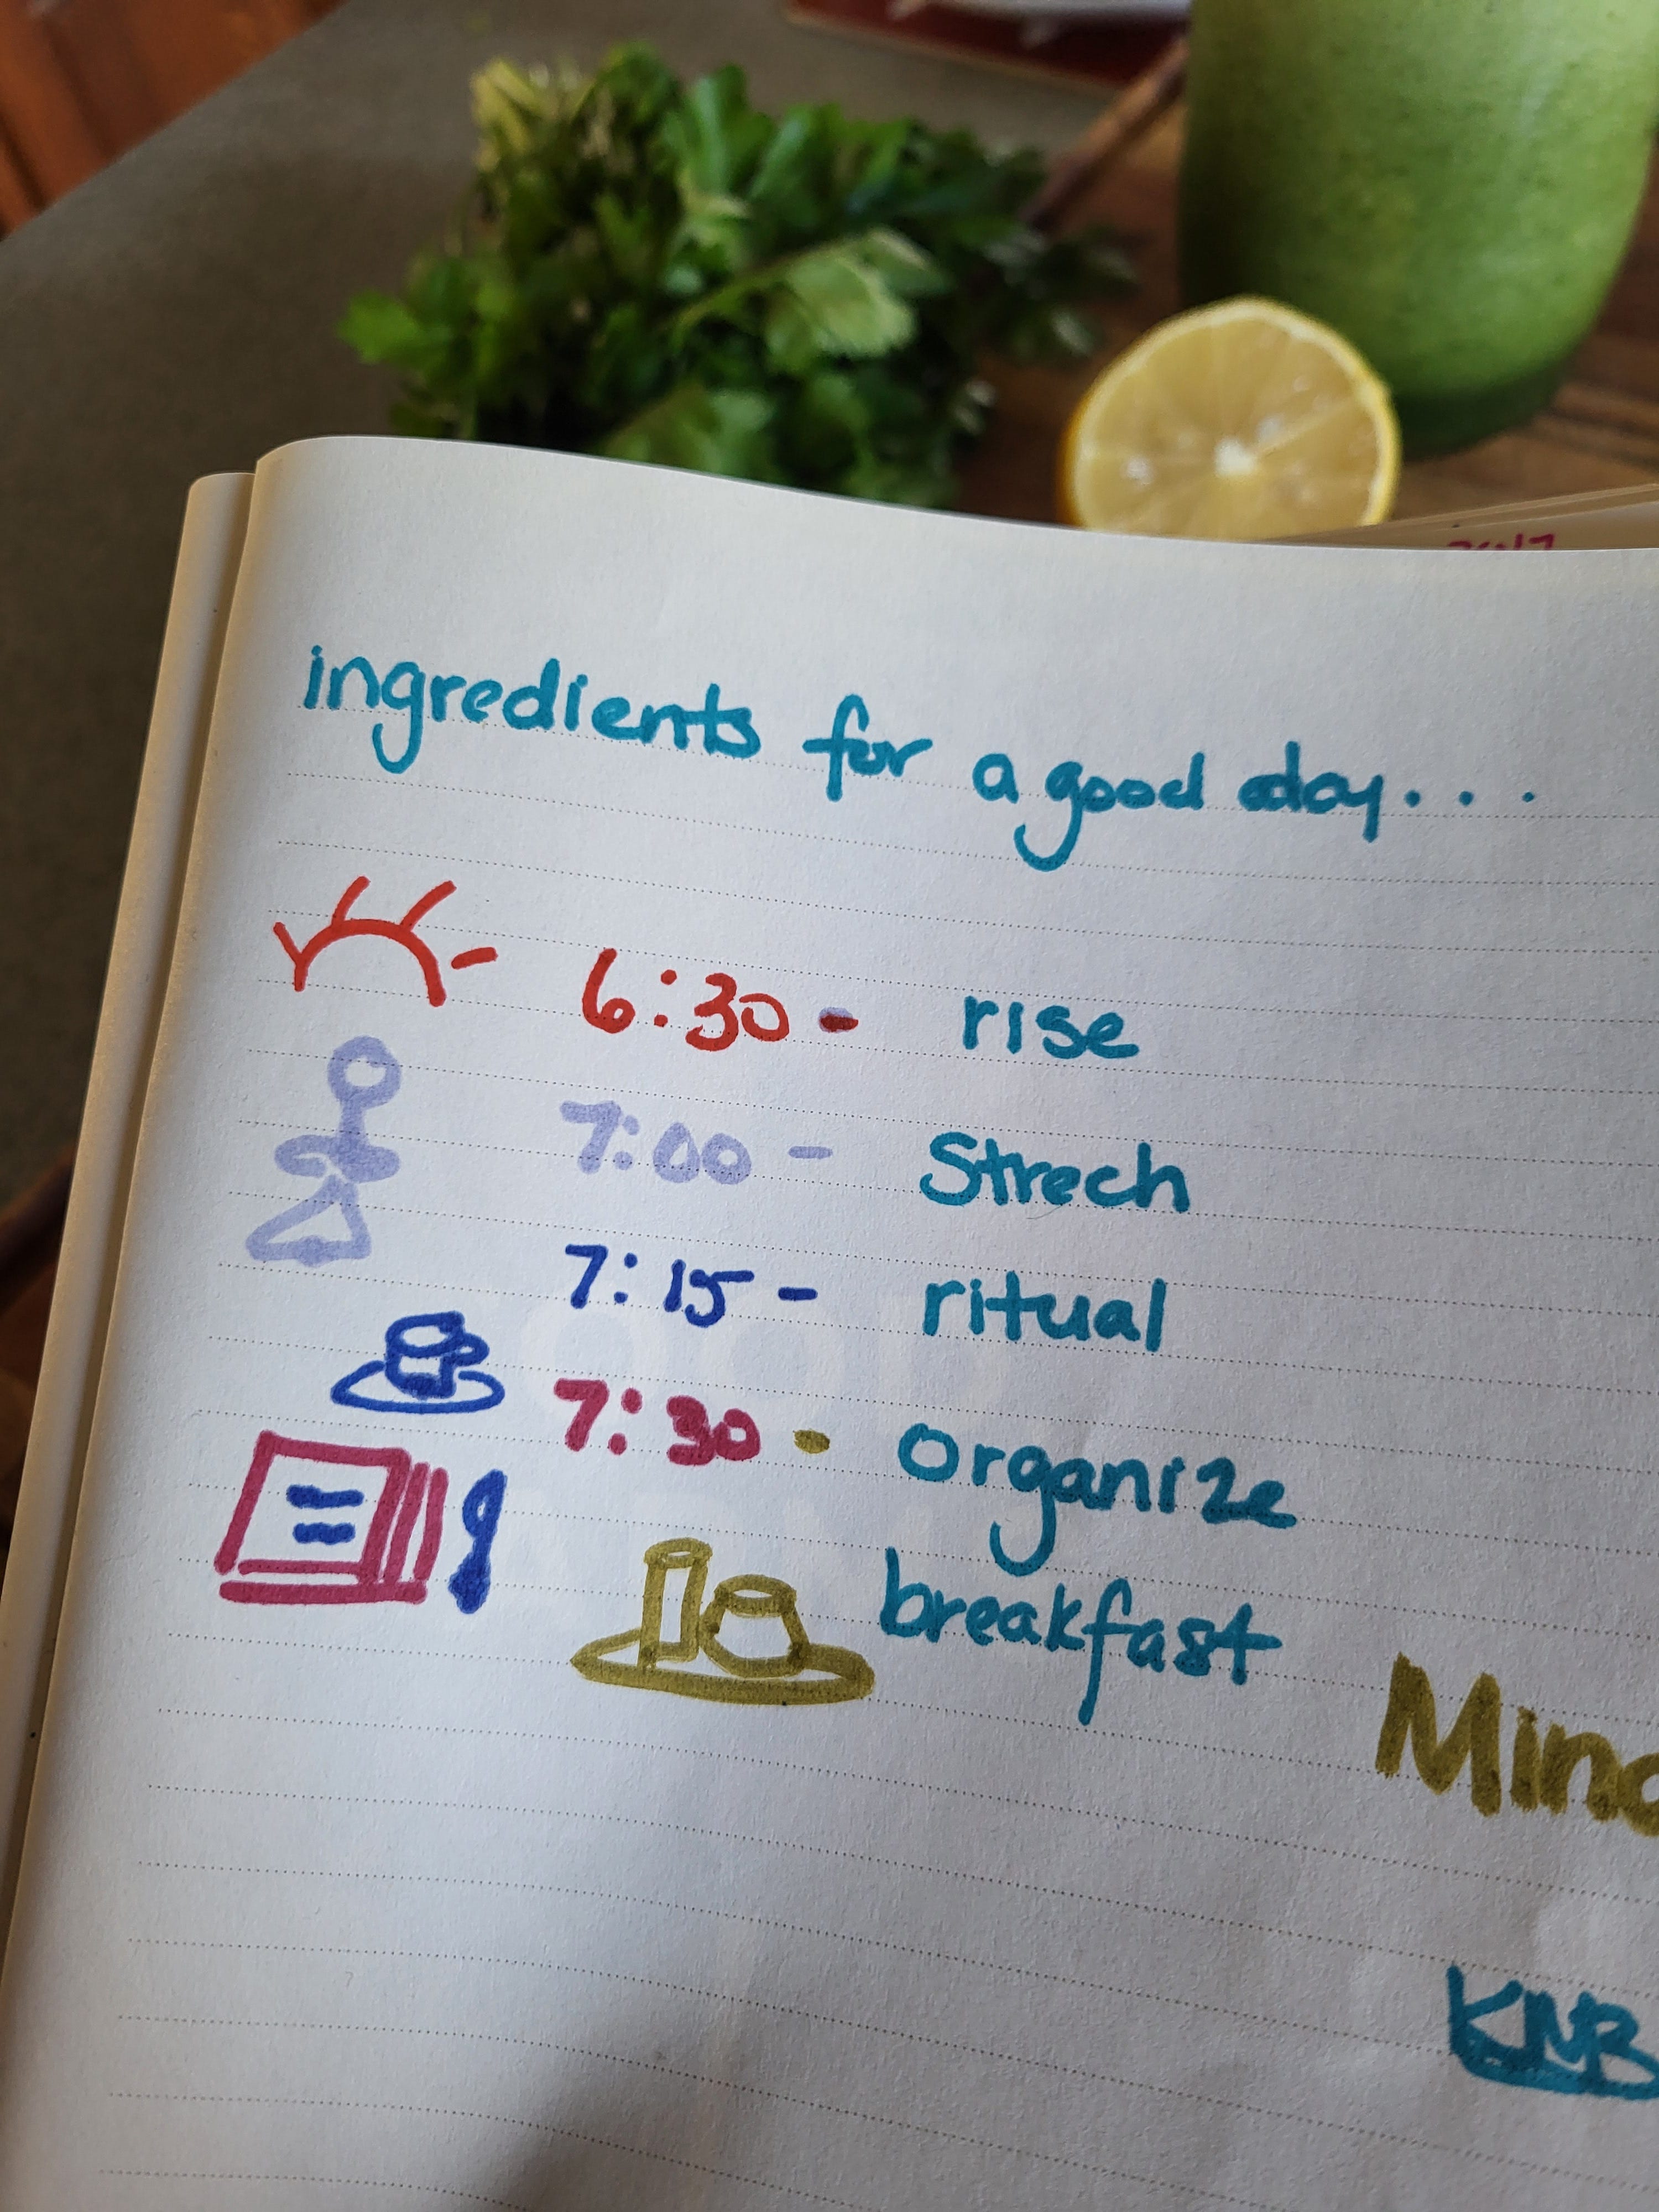 ingredients for a good day...
6:30 - rise
7:00 - Strech
7:15 - ritual
7:30 - organize
breakfast
KNB